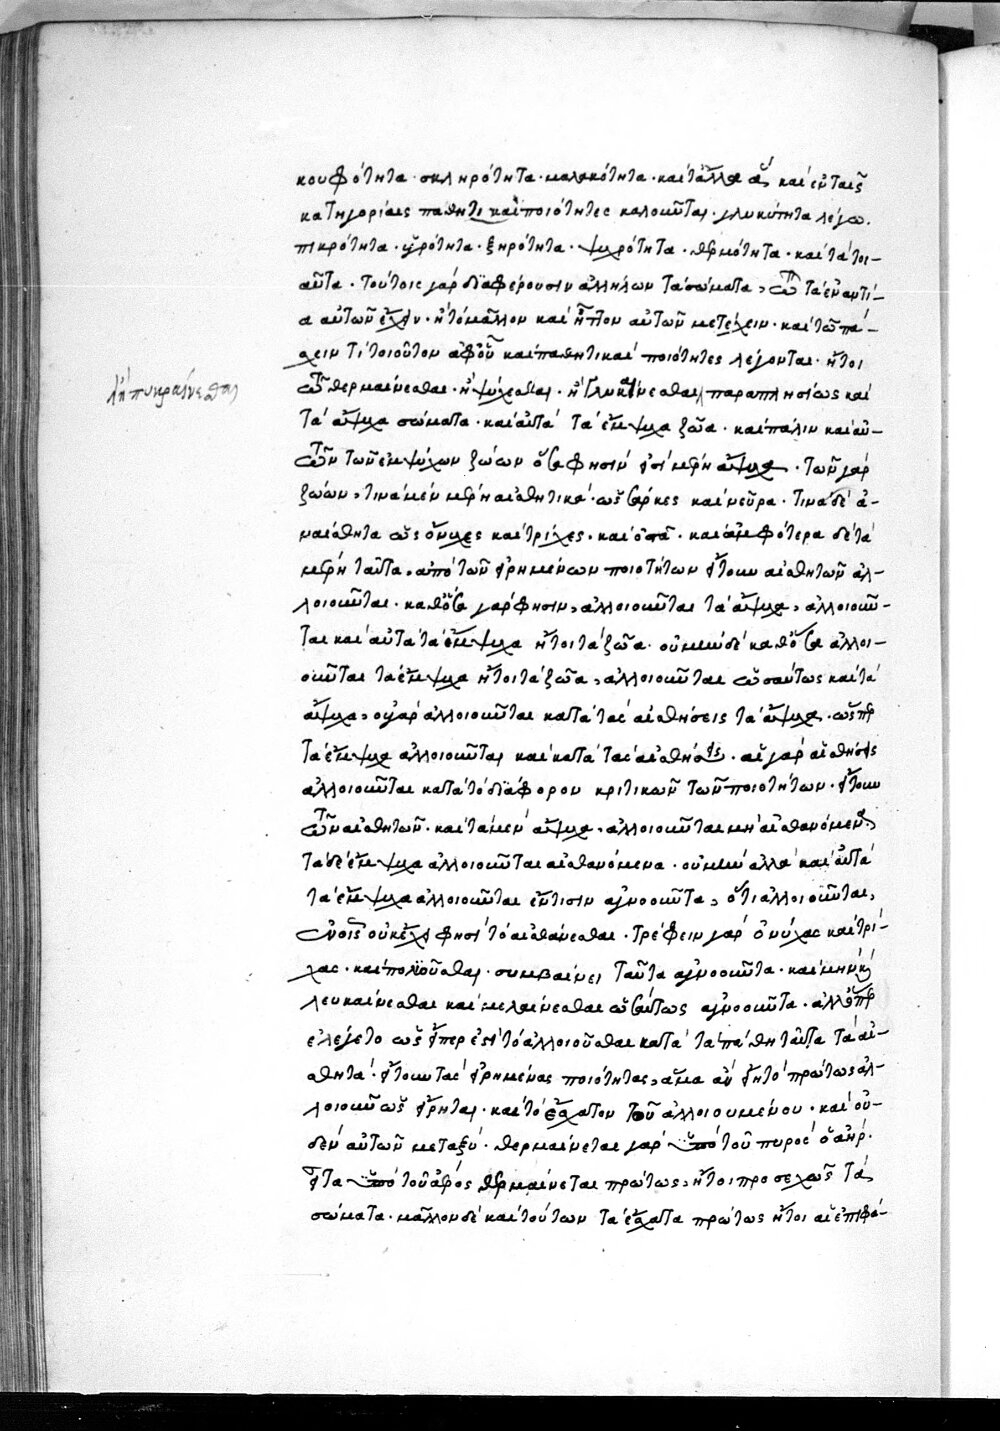 κουφότητα· σκληρότητα· μαλακότητα· καὶ τἄλλα ἃ καὶ ἐν ταῖς
κατηγορίαις παθητικαὶ ποιότητες καλοῦνται· γλυκύτητα λέγω·
πικρότητα· ὑγρότητα· ξηρότητα· ψυχρότητα· θερμότητα· καὶ τὰ τοι-
αῦτα· τούτοις γὰρ διαφέρουσιν ἀλλήλων τὰ σώματα, τῶ τὰ ἐναντί-
α αὐτῶν ἔχειν· ἢ τὸ μᾶλλον καὶ ἧττον αὐτῶν μετέχειν· καὶ τῶ πά-
σχειν τὶ τοιοῦτον ἀφ' οὗ καὶ παθητικαὶ ποιότητες λέγονται· ἤτοι
τῶ θερμαίνεσθαι· ἢ ψύχεσθαι· ἢ γλυκαίνεσθαι παραπλησίως καὶ
ἢ πικραίνεσθαι
τὰ ἄψυχα σώματα· καὶ αὐτὰ τὰ ἔμψυχα ζῶα· καὶ πάλιν καὶ αὐ-
τῶν τῶν ἐμψύχων ζώων ὅσα φησὶν εἰσὶ μέρη ἄψυχα· τῶν γὰρ
ζώων, τινὰ μὲν μέρη αἰσθητικά· ὡς σάρκες καὶ νεῦρα· τινὰ δὲ ἀ-
ναίσθητα ὡς ὄνυχες καὶ τρίχες· καὶ ὀστᾶ· καὶ ἀμφότερα δὲ τὰ
μέρη ταῦτα, ἀπὸ τῶν εἰρημένων ποιοτήτων ἤτουν αἰσθητῶν ἀλ-
λοιοῦνται· καθ' ὅσα γὰρ φησὶν, ἀλλοιοῦνται τὰ ἄψυχα, ἀλλοιοῦν-
ται καὶ αὐτὰ τὰ ἔμψυχα ἤτοι τὰ ζῶα· οὐ μὴν δὲ καθ' ὅσα ἀλλοι-
οῦνται τὰ ἔμψυχα ἤτοι τὰ ζῶα, ἀλλοιοῦνται ὡσαύτως καὶ τὰ
ἄψυχα, οὐ γὰρ ἀλλοιοῦνται κατὰ τὰς αἰσθήσεις τὰ ἄψυχα· ὥσπερ
τὰ ἔμψυχα ἀλλοιοῦνται καὶ κατὰ τὰς αἰσθήσεις· αἱ γὰρ αἰσθήσεις
ἀλλοιοῦνται κατὰ τὸ διάφορον κριτικῶν τῶν ποιοτήτων· ἤτουν
τῶν αἰσθητῶν· καὶ τὰ μὲν ἄψυχα· ἀλλοιοῦνται μὴ αἰσθανόμενα,
τὰ δὲ ἔμψυχα ἀλλοιοῦνται αἰσθανόμενα· οὐ μὴν ἀλλὰ καὶ αὐτὰ
τὰ ἔμψυχα ἀλλοιοῦνται ἔν τισιν ἀγνοοῦντα, ὅτι ἀλλοιοῦνται,
ἐν οἷς οὐκ ἔχει φησὶ τὸ αἰσθάνεσθαι· τρέφειν γὰρ ὄνυχας καὶ τρί-
χας· καὶ πολιοῦσθαι· συμβαίνει ταῦτα ἀγνοοῦντα· καὶ μὴν καὶ
λευκαίνεσθαι καὶ μελαίνεσθαι ὡσαύτως ἀγνοοῦντα· ἀλλ' ὅπερ
ἐλέγετο ὡς εἴπερ ἐστὶ τὸ ἀλλοιοῦσθαι κατὰ τὰ πάθη ταῦτα τὰ αἰ-
σθητά· ἤτουν τὰς εἰρημένας ποιότητας, ἅμα ἂν εἴη τὸ πρώτως ἀλ-
λοιοῦν ὡς εἴρηται· καὶ τὸ ἔσχατον τοῦ ἀλλοιουμένου· καὶ οὐ-
δὲν αὐτῶν μεταξύ· θερμαίνεται γὰρ ὑπὸ τοῦ πυρὸς ὁ ἀήρ·
εἶτα ὑπὸ τοῦ ἀέρος θερμαίνεται πρώτως, ἤτοι προσεχῶς τὰ
σώματα· μᾶλλον δὲ καὶ τούτων τὰ ἔσχατα πρώτως ἤτοι αἱ ἐπιφά-